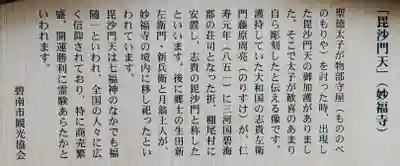 「毘沙門天」(妙福寺)
聖徳太子が物部守屋(もののべ
のもりや)を討った時、出現し
た毘沙門天の御加護がありまし
た。そこで太子が歓喜のあまり
自ら彫刻したと伝える像です。
護持していた大和国の志貴左衛
門藤原周亮(のりすけ)が、仁
寿元年(八五一)に三河国碧海
郡の荘司となった折、棚尾村に
安置し、志貴の毘沙門と称した
といいます。後に郷士の生田新
左衛門・新兵衛と月翁上人が、
妙福寺の境内に移し祀ったとい
われています。
毘沙門天は七福神のなかでも福
随一といわれ、全国の人々に広
く信仰されており、特に商売繁
盛、開運勝利に霊験あらたかと
いわれます。
碧南市観光協会